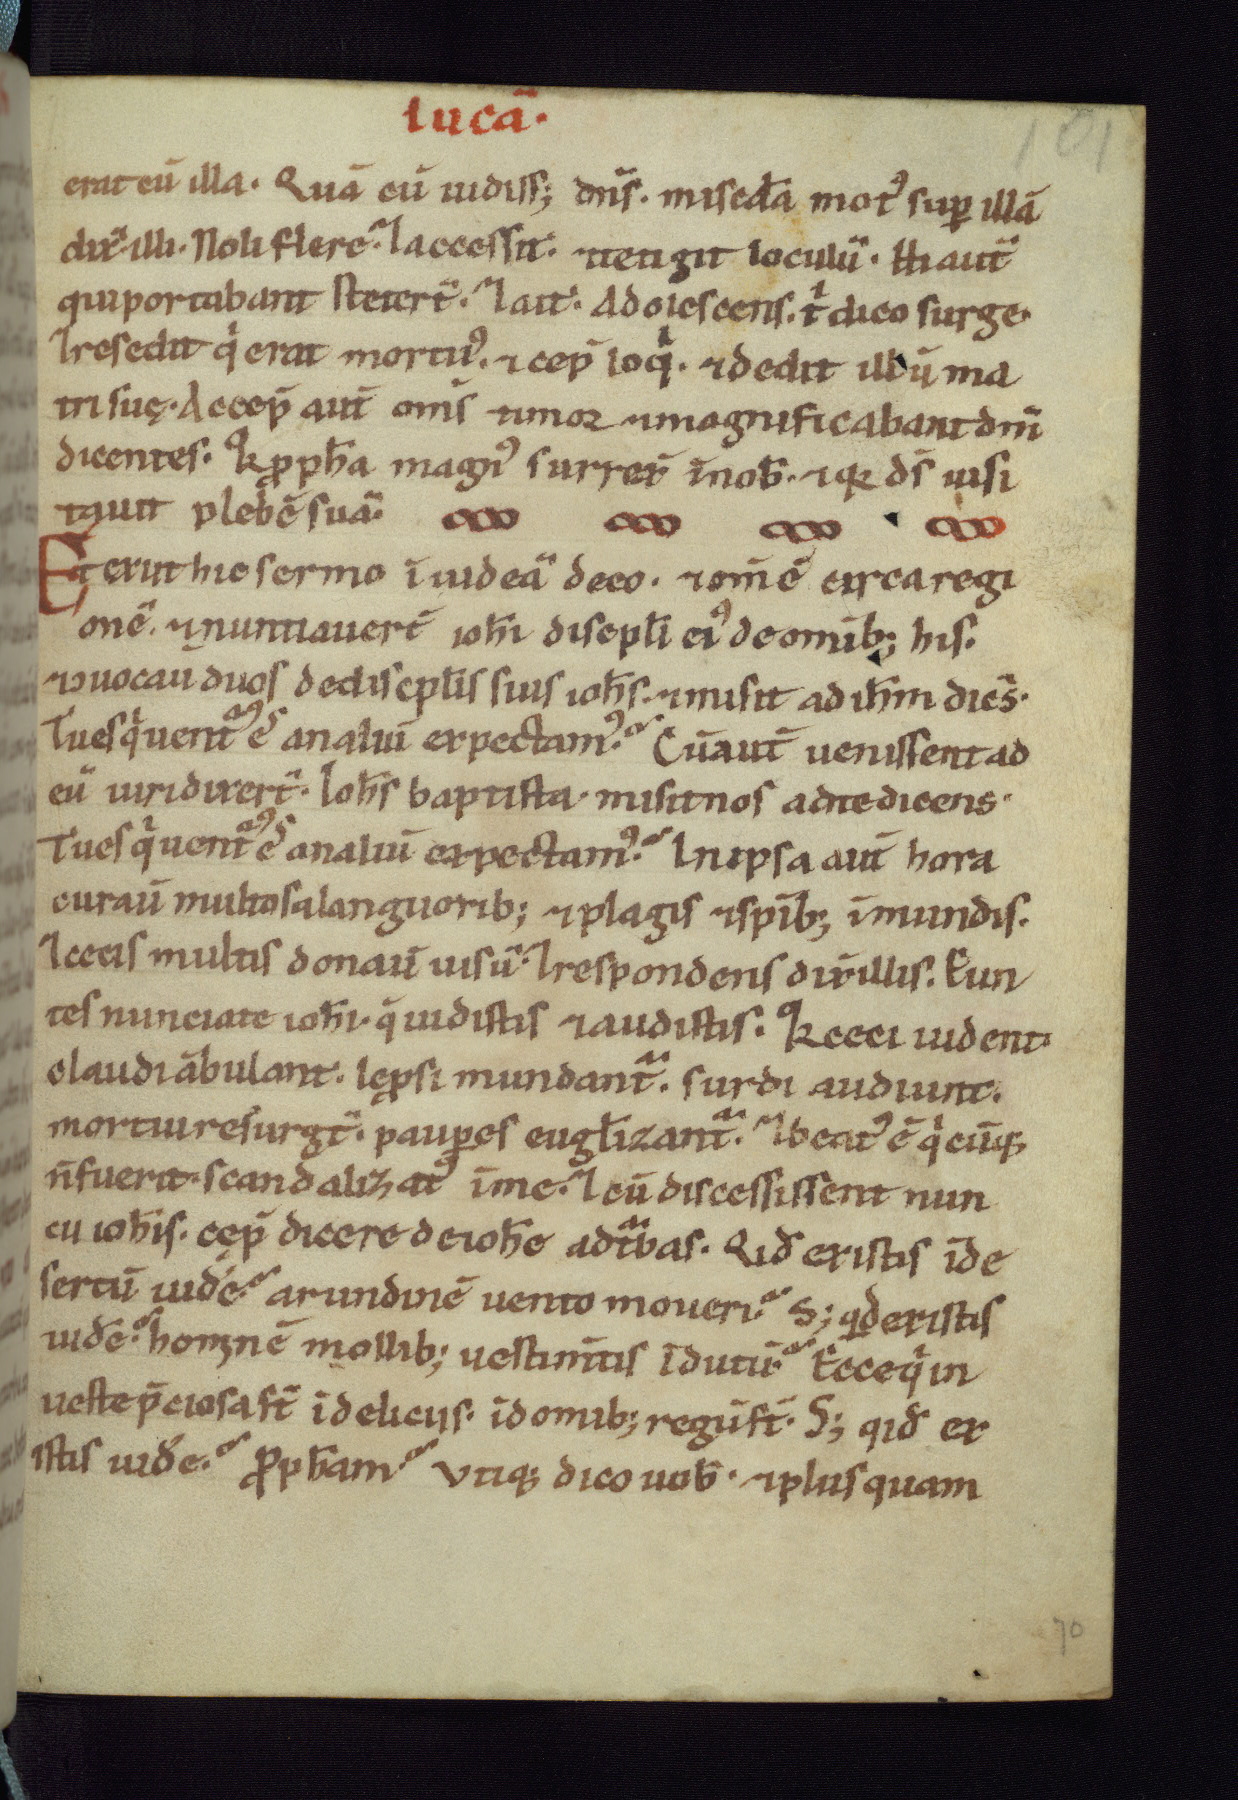 lucā·
101
erat cū illa. Quā cū uidiss; dn̄s. misc̄dia mot᷒ sup illā
dix̄ illi. Noli flere. ⁊accessit. ⁊tetigit loculū. Hi aut̄
qui portabant steter̄t. ⁊ait. Adolescens. t̄ dico surge.
⁊resedit q̄ erat mortu᷒. ⁊cep̄ loq̄. ⁊dedit illū ma
tri suę. Accep̄ aut̄ om̄s timor ⁊magnificabant dm̄
dicentes. Qꝛ ꝓph̄a magn᷒ surrex̄ inob̄. ⁊qꝛ ds̄ uisi
tauit plebē suā.
Et exiit hic sermo ī iudeā deeo. ⁊om̄ē circa regi
onē. ⁊nuntiauer̄t ioh̄i discipl̄i ei᷒ de omib; his.
⁊uocau duos dediscipl̄is suis ioh̄s. ⁊misit ad ih̄m dicēs.
Tu es q̄ uentur᷒ es an aliū expectam᷒. Cū aut̄ uenissent ad
eū uiri dixer̄t. Ioh̄s baptista misit nos ad te dicens.
Tu es q̄ uentur᷒ es an aliū expectam᷒. In ipsa aut̄ hora
curau̅ multos a languorib; ⁊plagis ⁊sp̄ib; īmundis.
⁊cecis multis donau̅ uisū. ⁊respondens dix̄ illis. Eun
tes nunciate ioh̄i q̄ uidistis ⁊audistis. Qꝛ ceci uident
claudi ābulant. lep̄si mundant̄. surdi audiunt.
mortui resurgt̄. paup̱es eugl̄izant̄. ⁊beat᷒ ē q̄cūq;
n̄ fuerit scandalizat᷒ īme. ⁊cū discessissent nun
cii ioh̄is. cęp̄ dicere de ioh̄e ad t̄bas. Qid existis īde
sertū uidē. arundinē uento moueri. S; qd existis
uidē. hominē mollib; uestimt̄is īdutū. Ecce q̄ in
ueste p̄ciosa st̄ ī deliciis. īdomib; regū st̄. S; qid ex
istis uidē. ꝓph̄am. Vtiq; dico uob̄. ⁊plus quam
70